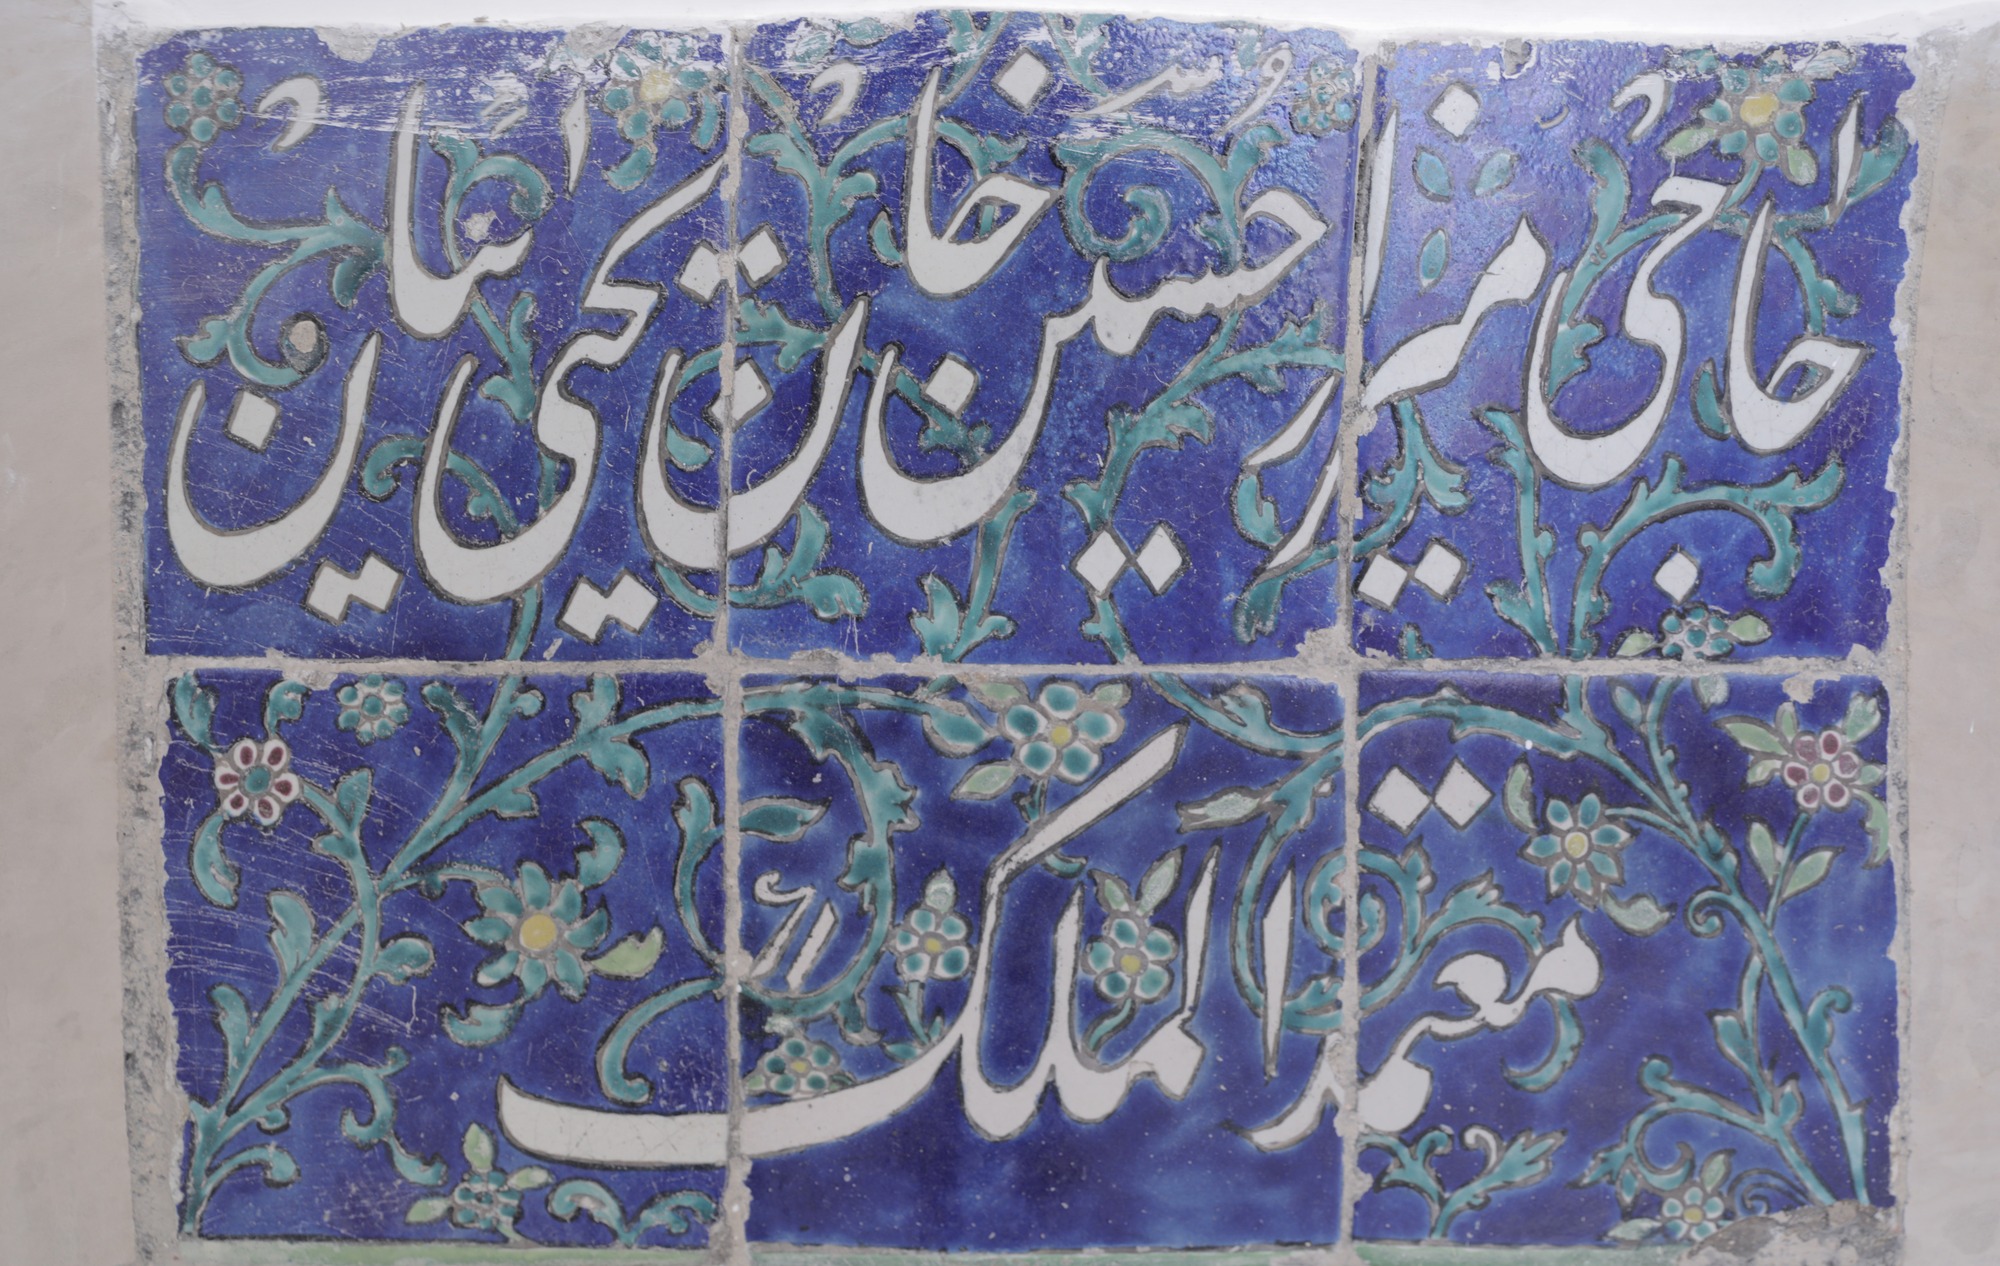 حاجی میرزا حسین خان یحیی
معتمد الملک